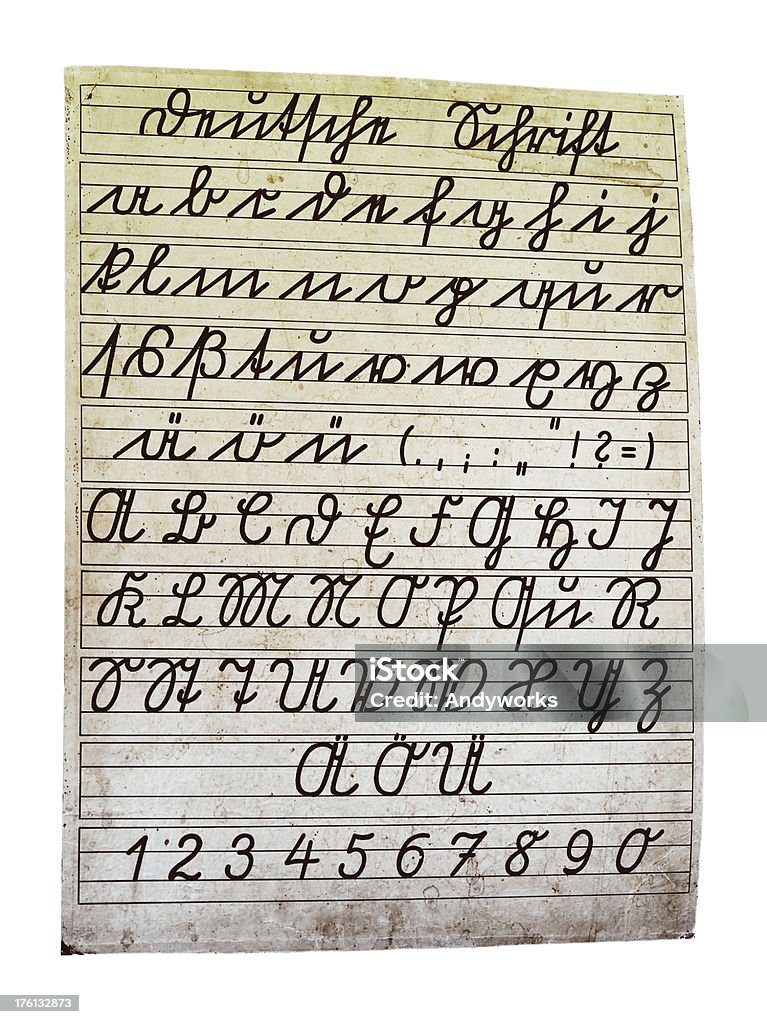 Deutsche Schrift
a b c d e f g h i j
k l m n o p qu r
ſ s ß t u v w x y z
ä ö ü ( . , ; : „ “ ! ? = )
A B C D E F G H I J
K L M N O P Qu R
S St T U V W X Y Z
iStock
Credit: Andyworks
Ä Ö Ü
1 2 3 4 5 6 7 8 9 0
176132873